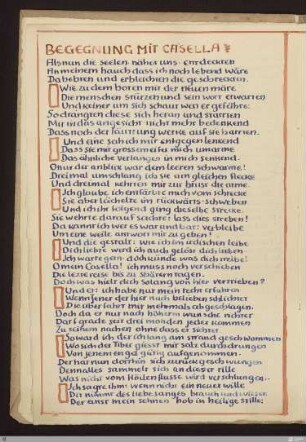 BEGEGNUNG MIT CASELLA
Als nun die seelen näher uns entdeckten
An meinem hauch dass ich noch lebend wäre
Da bebten und erbleichten die geschreckten.
Wie zu dem boten mit der frieden märe
Die menschen stürzen und sein wort erwarten
Und keiner um sich schaut wen er gefähre:
So drangten diese sich heran und starrten
Mir ins angesicht nicht mehr bedenkend
Dass noch der läutrung werke auf sie harrten.
Und eine sah ich mir entgegen lenkend
Dass sie mir grossen eifers nah umarme
Das ähnliche verlangen in mich senkend.
O nur der anblick war dem leeren schwarme!
Dreimal umschlang ich sie am gleichen flecke
Und dreimal kehrten mir zur brust die arme.
Ich glaube ich entfärbte mich vom schrecke
Sie aber lächelte im rückwärts schweben
Und ich ihr folgend ging dieselbe strecke.
Sie wehrte darauf sanft: lass dies streben!
Da kannt ich wer es war und bat: verbleibe
Um eine weile antwort mir zu geben!
Und die gestalt: wie ich im irdischen leibe
Dich liebte werd ich auch gelöst dich lieben
Ich warte gern doch künde was dich treibe!
O mein Casella! ich muss noch verschieben
Die letzte reise bis zu späteren tagen.
Doch was hielt dich solang von hier vertrieben?
Und er: ich habe nur mein recht erfahren
Wenn jener der hier nach belieben schlichtet
Die überfahrt mir mehrmals abgeschlagen.
Doch da er nur nach höherm wunsche richtet
Darf grade seit drei monden jeder kommen
Zu seinem nachen ohne dass er sichtet
So ward ich der ich lang am strand geschwommen
Wo sich die Tiber giesst mit salz durchdrungen
Von jenem engel gütig aufgenommen.
Der hat nun dorthin sich zurückgeschwungen
Denn alles sammelt sich an dieser rille
Was nicht vom Höllenfluss wird verschlungen.
Ich sagte ihm: wenn nicht ein neuer wille
Dir nimmt des liebe sanges brauch und wissen
Der einst mein sehnen hob in heilge stille: